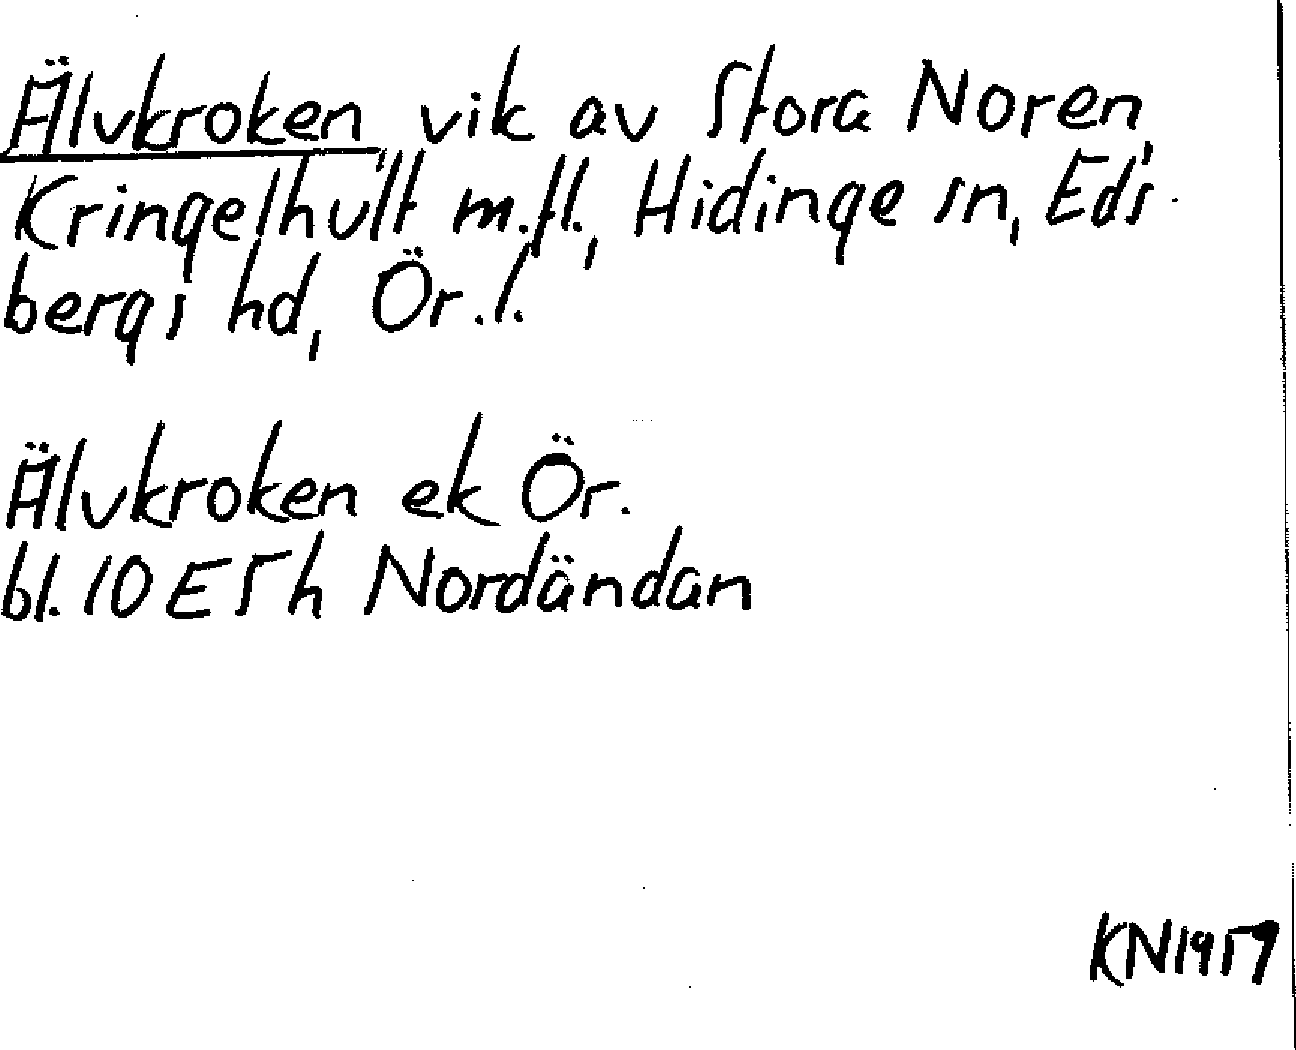 Älvkroken vik av Stora Noren,
Kringelhult m.fl., Hidinge sn, Eds-
bergs hd, Ör.l.
Älvkroken ek Ör.
bl. 10E5h Nordändan
KN1957